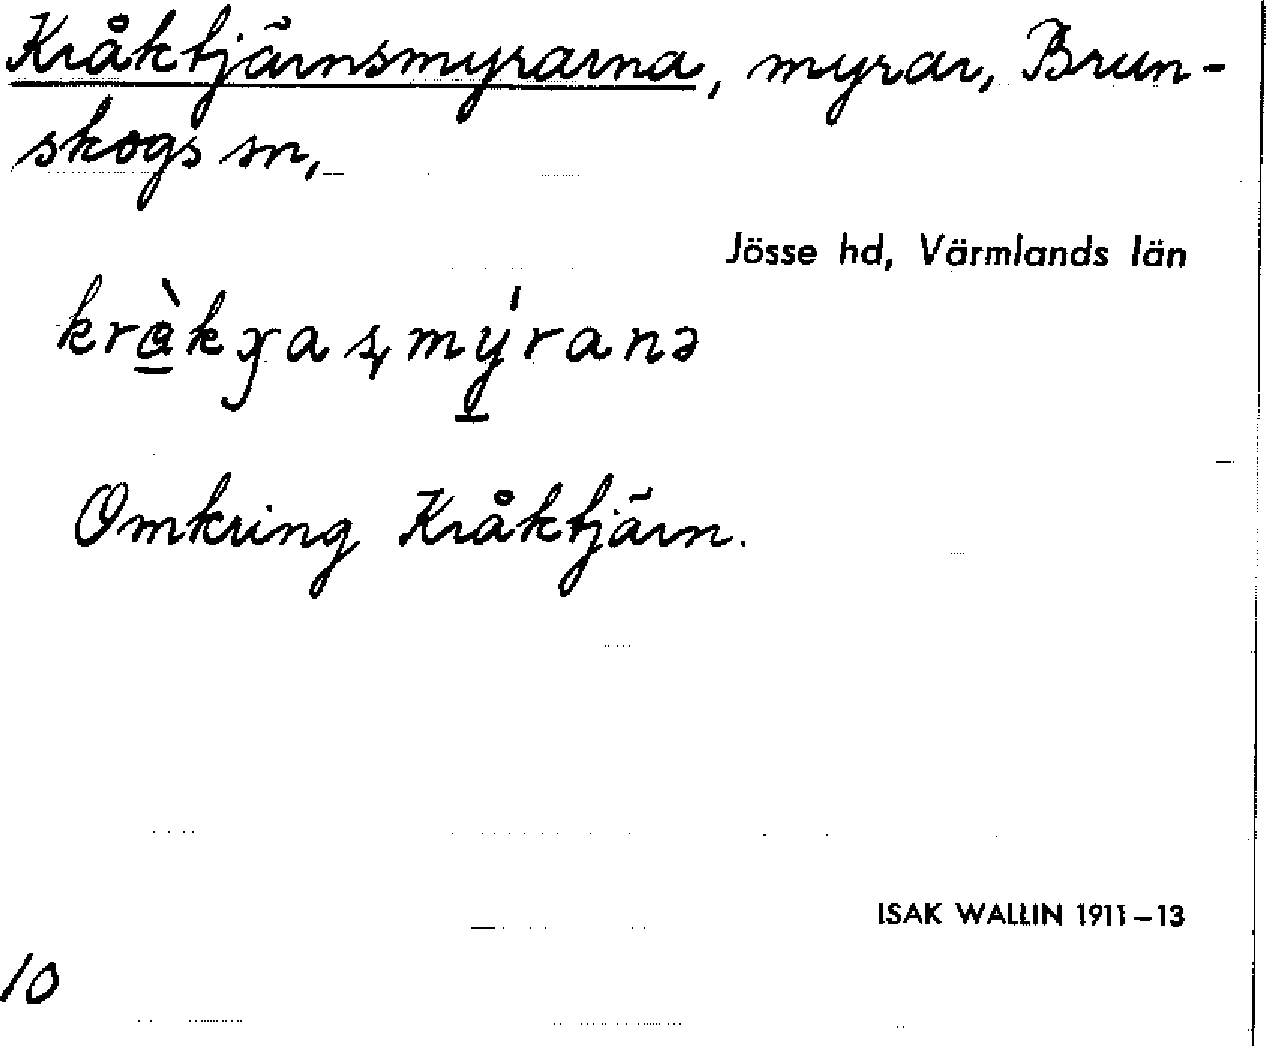 Kråktjärnsmyrarna, myrar, Brun-
skogs sn,
Jösse hd, Värmlands län
Omkring Kråktjärn.
ISAK WALLIN 1911–13
10